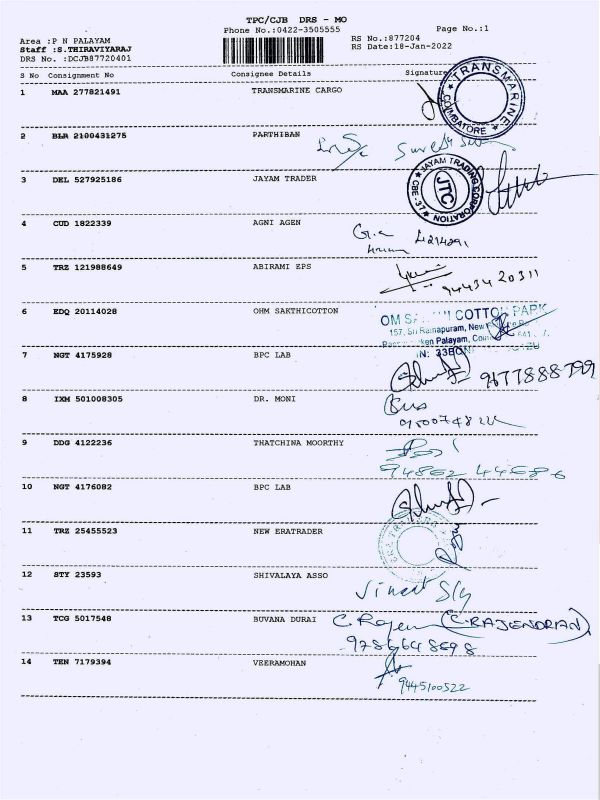 TPC/CJB DRS - MO
Phone No.:0422-3505555 Page No.:1
Area :P N PALAYAM RS No.:877204
Staff :S.THIRAVIYARAJ RS Date:18-Jan-2022
DRS No. :DCJB87720401
S No Consignment No Consignee Details Signature
1 MAA 277821491 TRANSMARINE CARGO
TRANSMARINE
COIMBATORE
2 BLR 2100431275 PARTHIBAN
3 DEL 527925186 JAYAM TRADER
JAYAM TRADING CORPORATION
CBE-37
JTC
4 CUD 1822339 AGNI AGEN
5 TRZ 121988649 ABIRAMI EPS
94434 20311
6 EDQ 20114028 OHM SAKTHICOTTON
COTTON PARK
157, Sri Ramapuram, New
Palayam,
7 NGT 4175928 BPC LAB
9677888799
8 IXM 501008305 DR. MONI
9 DDG 4122236 THATCHINA MOORTHY
94862 44686
10 NGT 4176082 BPC LAB
11 TRZ 25455523 NEW ERATRADER
12 STY 23593 SHIVALAYA ASSO
13 TCG 5017548 BUVANA DURAI
(C.RAJENDRAN)
9786648698
14 TEN 7179394 VEERAMOHAN
9445100522